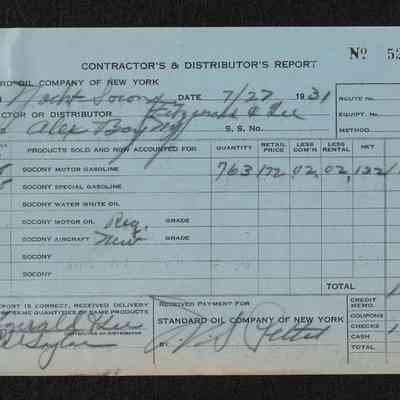 CONTRACTOR'S & DISTRIBUTOR'S REPORT
Nº 52
RD OIL COMPANY OF NEW YORK
Yacht Socony DATE 7/27 1931
ROUTE NO.
CTOR OR DISTRIBUTOR Fitzgerald & Lee
EQUIPT. NO.
Alex Bay NY S. S. NO.
METHOD
PRODUCTS SOLD AND NOW ACCOUNTED FOR QUANTITY RETAIL PRICE LESS COM'N LESS RENTAL NET
SOCONY MOTOR GASOLINE 763 172 .02 .02 132
SOCONY SPECIAL GASOLINE
SOCONY WATER WHITE OIL
SOCONY MOTOR OIL Reg. GRADE
SOCONY AIRCRAFT New GRADE
TOTAL
EPORT IS CORRECT, RECEIVED DELIVERY
SAME QUANTITIES OF SAME PRODUCTS
RECEIVED PAYMENT FOR
STANDARD OIL COMPANY OF NEW YORK
CREDIT MEMO.
COUPONS
CHECKS
CASH
TOTAL